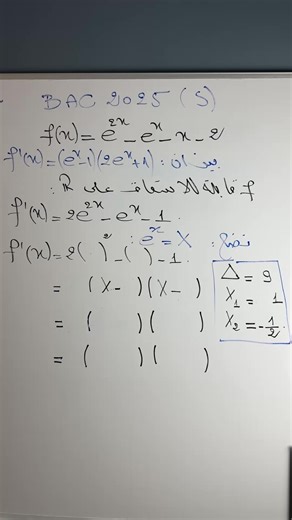 BAC 2025 (S)
f(x) = e^{2x} - e^x - x - 2
بين ان : f'(x) = (e^x - 1)(2e^x + 1)
f قابلة للاشتقاق على R :
f'(x) = 2e^{2x} - e^x - 1.
نضع : e^x = X
f'(x) = 2( )^2 - ( ) - 1.
= (X - )(X - )
= ( )( )
= ( )( )
Δ = 9
X_1 = 1
X_2 = -\frac{1}{2}